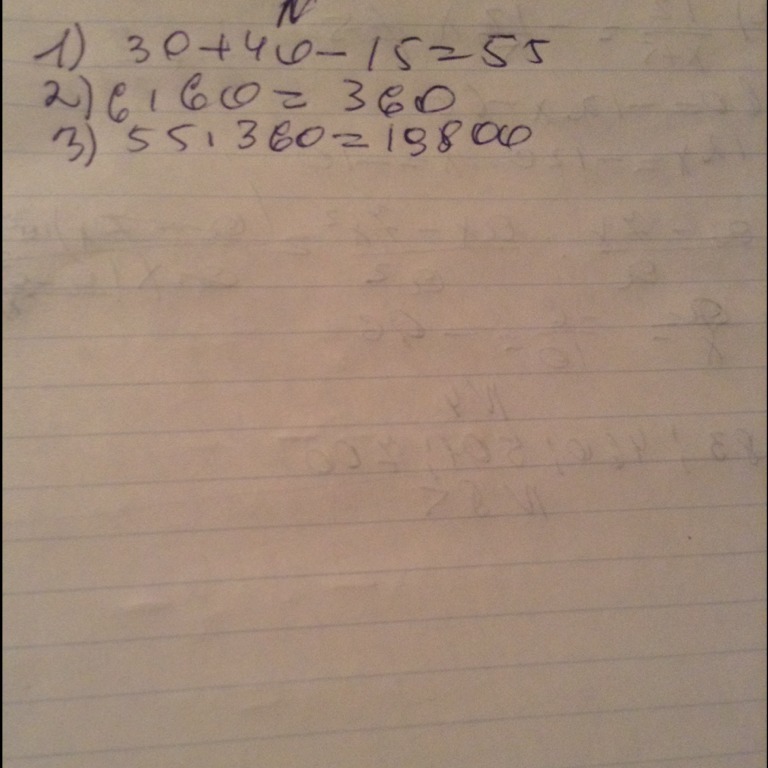 N
1) 30+40-15=55
2) 6·60=360
3) 55·360=19800